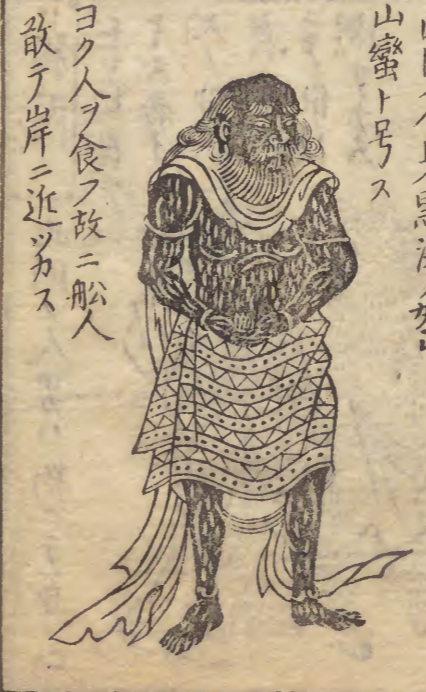 黒漆ノ如
山蠻ト号ス
ヨク人ヲ食フ故ニ舩人
敢テ岸ニ近ツカス